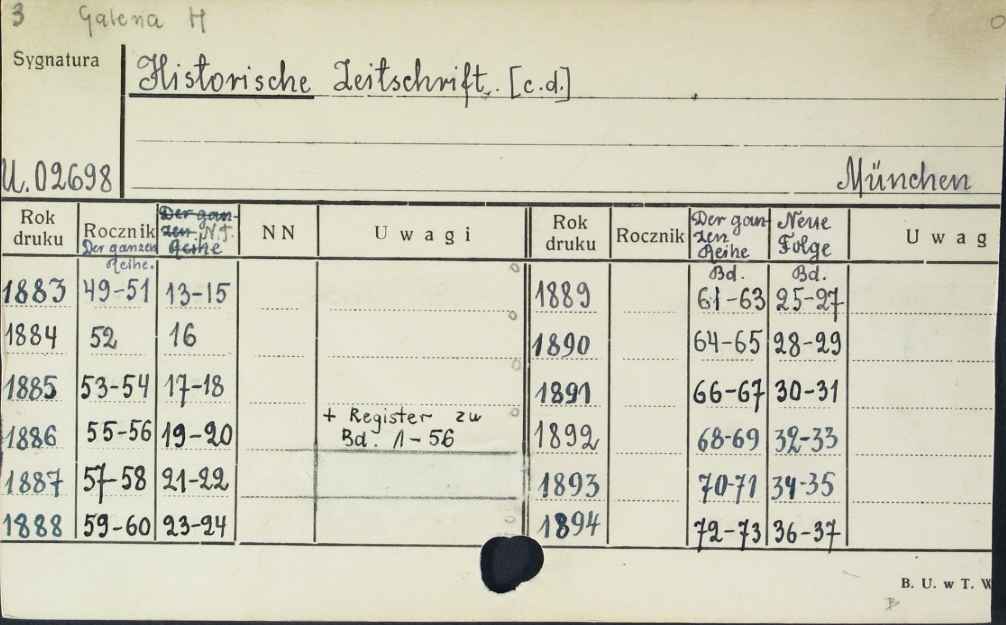 3 Galena H
Sygnatura
Historische Zeitschrift. [c.d.]
U.02698
München
Rok druku | Rocznik Der ganzen Reihe. | Der ganzen N.F. Reihe | NN | Uwagi | Rok druku | Rocznik | Der ganzen Reihe Bd. | Neue Folge Bd. | Uwag
1883 | 49-51 | 13-15 | | | 1889 | | 61-63 | 25-27
1884 | 52 | 16 | | | 1890 | | 64-65 | 28-29
1885 | 53-54 | 17-18 | | | 1891 | | 66-67 | 30-31
1886 | 55-56 | 19-20 | | + Register zu Bd. 1-56 | 1892 | | 68-69 | 32-33
1887 | 57-58 | 21-22 | | | 1893 | | 70-71 | 34-35
1888 | 59-60 | 23-24 | | | 1894 | | 72-73 | 36-37
B. U. w T. W
B